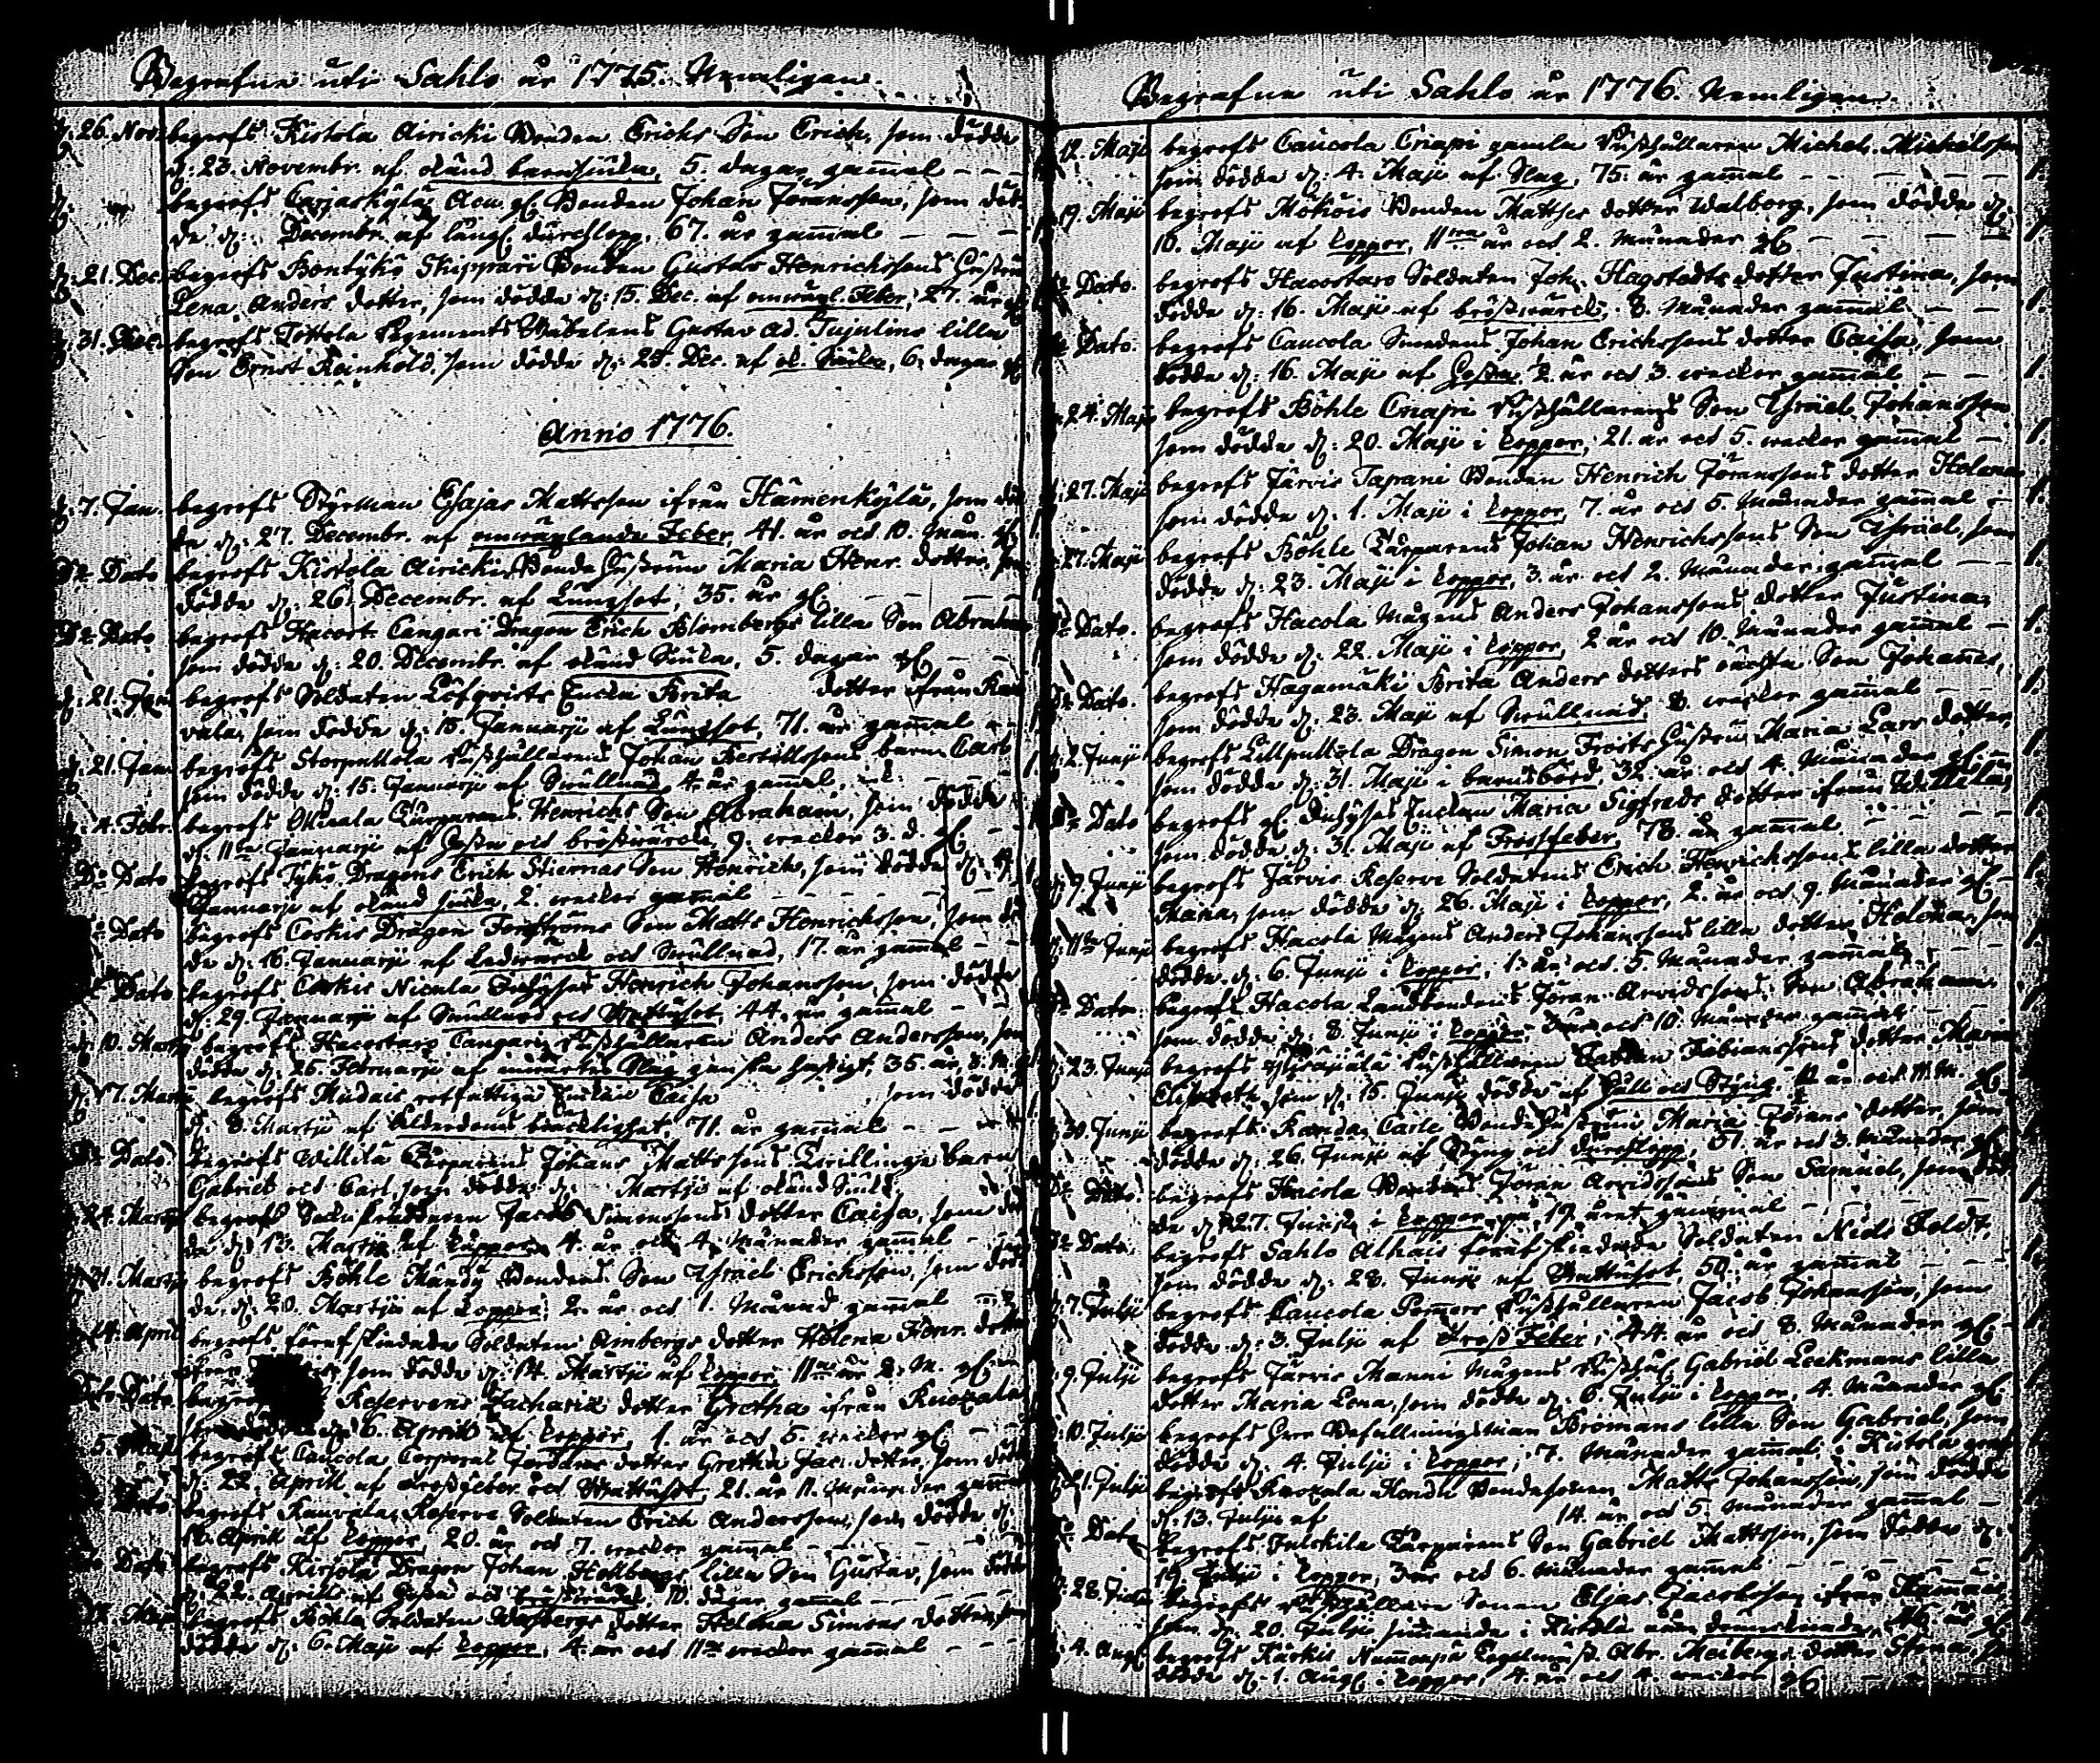 Begrafne uti Sahlo år 1775. Nemligen.
d: 26. Nov. begrofs Kistola Airicki Bonden Erichs Son Erich, som dödde
d: 23. Novembr. af okänd barnsjuka, 5. dagar gammal
begrofs Bonden Johan Göransson, som död-
de d: Decembr. af lungs. durchlopp, 67. år gammal
d: 21. Dec. begrofs Bontykö Skippari Bonden Gustav Henrichssons hustru
Lena Anders dotter, som dödde d: 15. Dec. af omvägl. Feber, 27. år gl
d: 31. Dec. begrofs Tottola Regements Gustav Ad. Tujulins lilla
Son Ernst Reinhold, som dödde d: 25. Dec. af ok. Siuka, 6. dagar gl
Anno 1776.
d: 7. Jan. begrofs Styrman Esajas Mattsson ifrån Hämenkylä, som död-
de d: 27. Decembr. af omväxlande Feber, 41. år och 10. mån. gl
Do Dato begrofs Kistola Airicki Bonde hustrun Maria Henr. dotter, som
dödde d: 26. Decembr. af Lungsot, 35. år gl
Do Dato begrofs Hacost. Cangari Dragon Erich Blombergs lilla Son Abraham
som dödde d: 20. Decembr. af okänd Siuka, 5. dagar gl
d: 21. Jan. begrofs Soldaten Löfqvists Enka Brita dotter ifrån Kau-
vala, som dödde d: 15. Januarii af Lungsot, 71. år gammal
d: 21. Jan. begrofs Storputtola Rusthållarens Johan Bertillssons barn Carl
som dödde d: 15. Januarii af Swullnad, 4. år gammal
d: 4. Febr. begrofs Torparens Henrichs Son Abraham, som dödde
d: 11te Januarii af hosta och bröstwärck, 9. weckor 3. d. gl
Do Dato begrofs Tykö Dragons Erich Stiernas Son Henrich, som dödde d:
Januarii af okänd siuka, 2. weckor gammal
Do Dato begrofs Coskis Dragon Forsströms Son Matts Henrichsson, som död-
de d: 16. Januarii af Ledwärck och Swullnad, 17. år gammal
Do Dato begrofs Coskis Nicula Inhyses Henrich Johansson, som dödde
d: 29. Januarii af Swullnad och Wattusot, 44. år gammal
d: 10. Martii begrofs Hacostaro Cangari Rusthållaren Anders Andersson, som
dödde d: 25. Februarii af Slag ganska hastigt, 35. år, 8. m. gl
d: 17. Martii begrofs rotfattiga Enkan Caisa som dödde
d: 8. Martii af ålderdoms bräcklighet 71. år gammal
Do Dato begrofs Willilä Torparens Johans Mattssons Twillinge barn
Gabriel och Carl, som dödde d: Martii af okänd Siuka
d: 24. Martii begrofs Jacob Simonssons dotter Caisa, som död-
de d: 13. Martii af koppor, 4. år och 4. månader gammal
d: 31. Martii begrofs Böhle Mändy Bondens Son Israel Erichsson, som död-
de d: 20. Martii af koppor, 2. år och 1. månad gammal
d: 14. April begrofs förafskiedade Soldaten Ambergs dotter Helena Henr. dotter
som dödde d: 14. Martii af koppor, 11. år 2. M. gl
Do Dato begrofs Reservens Zachariæ dotter Gretha ifrån Kuoxala
d: 6. Aprill af koppor, 1. år och 5. weckor gl
d: 5. Maji begrofs Caucola Corporal dotter Gretha Jac. dotter, som dödde
d: 22. Aprill af och Wattusot, 21. år 11. månader gammal
Do Dato begrofs Kauvala Reserve Soldaten Erich Andersson, som dödde d:
16. Aprill af koppor, 20. år och 7. weckor gammal
Do Dato begrofs Kirjola Dragon Johan Hellbergs lilla Son Gustav, som dödde
d: 22. Aprill af hosta och bröstwärck, 10. dagar gammal
d: 12. Maji begrofs Böhle Soldaten dotter Helena Simons dotter, som
dödde d: 6. Maji af koppor, 4. år och 11. weckor gammal
Begrafne uti Sahlo år 1776. Nemligen.
12. Maji begrofs Caucola Criapi gamla Rusthållaren Michel Michelsson
som dödde d: 4. Maji af Slag, 75. år gammal
19. Maji begrofs Mökois Bonden Matthes dotter Walborg, som dödde d:
10. Maji af koppor, 11. år och 2. månader gl
Do Dato. begrofs Hacostaro Soldaten Joh. Hagstedts dotter Justina, som
dödde d: 16. Maji af bröstwärck, 8. månader gammal
Do Dato. begrofs Caucola Smedens Johan Erichssons dotter Caisa, som
dödde d: 16. Maji af hosta, 2. år och 3. weckor gammal
24. Maji begrofs Böhle Cnapri Rusthållarens Son Israel Johansson
som dödde d: 20. Maji i koppor, 21. år och 5. weckor gammal
27. Maji begrofs Järvis Taprani Bonden Henrich Göranssons dotter Helena
som dödde d: 1. Maji i koppor, 7. år och 5. månader gammal
27. Maji begrofs Böhle Torparens Johan Henrichssons Son Israel, som
dödde d: 23. Maji i koppor, 3. år och 2. månader gammal
Do Dato. begrofs Hacola Mågens Anders Johanssons dotter Justina,
som dödde d: 22. Maji i koppor, 2 år och 10. månader gammal
Do Dato. begrofs Hagamäki Brita Anders dotters oächta Son Johannes,
som dödde d: 23. Maji af Swullnad, 8. weckor gammal
d: 2. Junii begrofs Lillputtola Dragon Simon Frosts hustru Maria Lars dotter,
som dödde d: 31. Maji i barnsbörd 32. år och 4. månader gl
Do Dato begrofs gl. Inhyses Enckan Maria Sigfrids dotter ifrån Willilä,
som dödde d: 31. Maji af Frossfeber, 78. år gammal
9. Junii begrofs Järvis Reserve Soldatens Erich Henrichssons lilla dotter
Maria, som dödde d: 26. Maji i koppor, 2. år och 9. månader gl
11te Junii begrofs Hacola Mågens Anders Johanssons lilla dotter Helena, som
dödde d: 6. Junii i koppor, 1. år och 5. månader gammal
Do Dato. begrofs Hacola Landbondens Jöran Arvidssons Son Abraham
som dödde d: 8. Junii i koppor, år och 10. månader gammal
d: 23. Junii begrofs Rusthållaren Fabian Fabianssons dotter Maria
Elisabeth, som d: 15. Junii dödde af håll och Styng, år och 11. M. gl
30. Junii begrofs Randa Carle Bonde hustrun Maria Jörans dotter, som
dödde d: 26. Junii af Styng och durchlopp, 51. år och 3. månader gl
Do Dato. begrofs Hacola Bondens Jöran Arvidssons Son Samuel, som död-
de d: 27. Junii i koppor, på 19. året gammal
Do Dato. begrofs Sahlo Alhais förafskiedade Soldaten Nils Foldt,
som dödde d: 28. Junii af Wattusot, 50. år gammal
7. Julii begrofs Caucola Pomors Rusthållaren Jacob Johansson, som
dödde d: 3. Julii af Fross Feber, 44. år och 8. månader gl
9. Julii begrofs Järvis Manni Mågens Gabriel Leekmans lilla
dotter Maria Lena, som dödde d: 6. Julii i koppor, 4. månader gl
10. Julii begrofs herr Befallningsman Bromans lilla Son Gabriel, som
dödde d: 4. Julii i koppor, 7. månader gammal, i Kistola
21. Julii begrofs Kuoxala Bondesonen Matts Johansson, som dödde
d: 13. Julii af 14. år och 5. månader gammal
Do Dato begrofs Inkskila Torparens Son Gabriel Mattsson, som dödde d:
19. Julii i koppor, 3 år och 6. månader gammal
28. Julii begrofs Rusthållare Sonen Elias Jacobsson ifrån
som d: 20. Julii simmande i Kistola
4. Aug. begrofs Kärkis Abr. Meibergs dotter Stina
dödde d: 1. Aug. i koppor, 4. år och 4. weckor gl